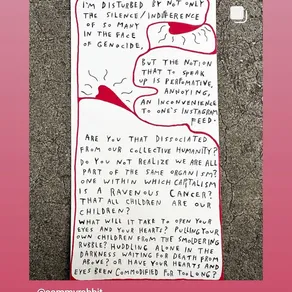 I'M DISTURBED BY NOT ONLY
THE SILENCE/INDIFFERENCE
OF SO MANY
IN THE FACE
OF GENOCIDE,
BUT THE NOTION
THAT TO SPEAK
UP IS PERFOMATIVE,
ANNOYING,
AN INCONVENIENCE
TO ONE'S INSTAGRAM
FEED.
ARE YOU THAT DISSOCIATED
FROM OUR COLLECTIVE HUMANITY?
DO YOU NOT REALIZE WE ARE ALL
PART OF THE SAME ORGANISM?
ONE WITHIN WHICH CAPITALISM
IS A RAVENOUS CANCER?
THAT ALL CHILDREN ARE OUR
CHILDREN?
WHAT WILL IT TAKE TO OPEN YOUR
EYES AND YOUR HEARTS? PULLING YOUR
OWN CHILDREN FROM THE SMOLDERING
RUBBLE? HUDDLING ALONE IN THE
DARKNESS WAITING FOR DEATH FROM
ABOVE? OR HAVE YOUR HEARTS AND
EYES BEEN COMMODIFIED FOR TOO LONG?